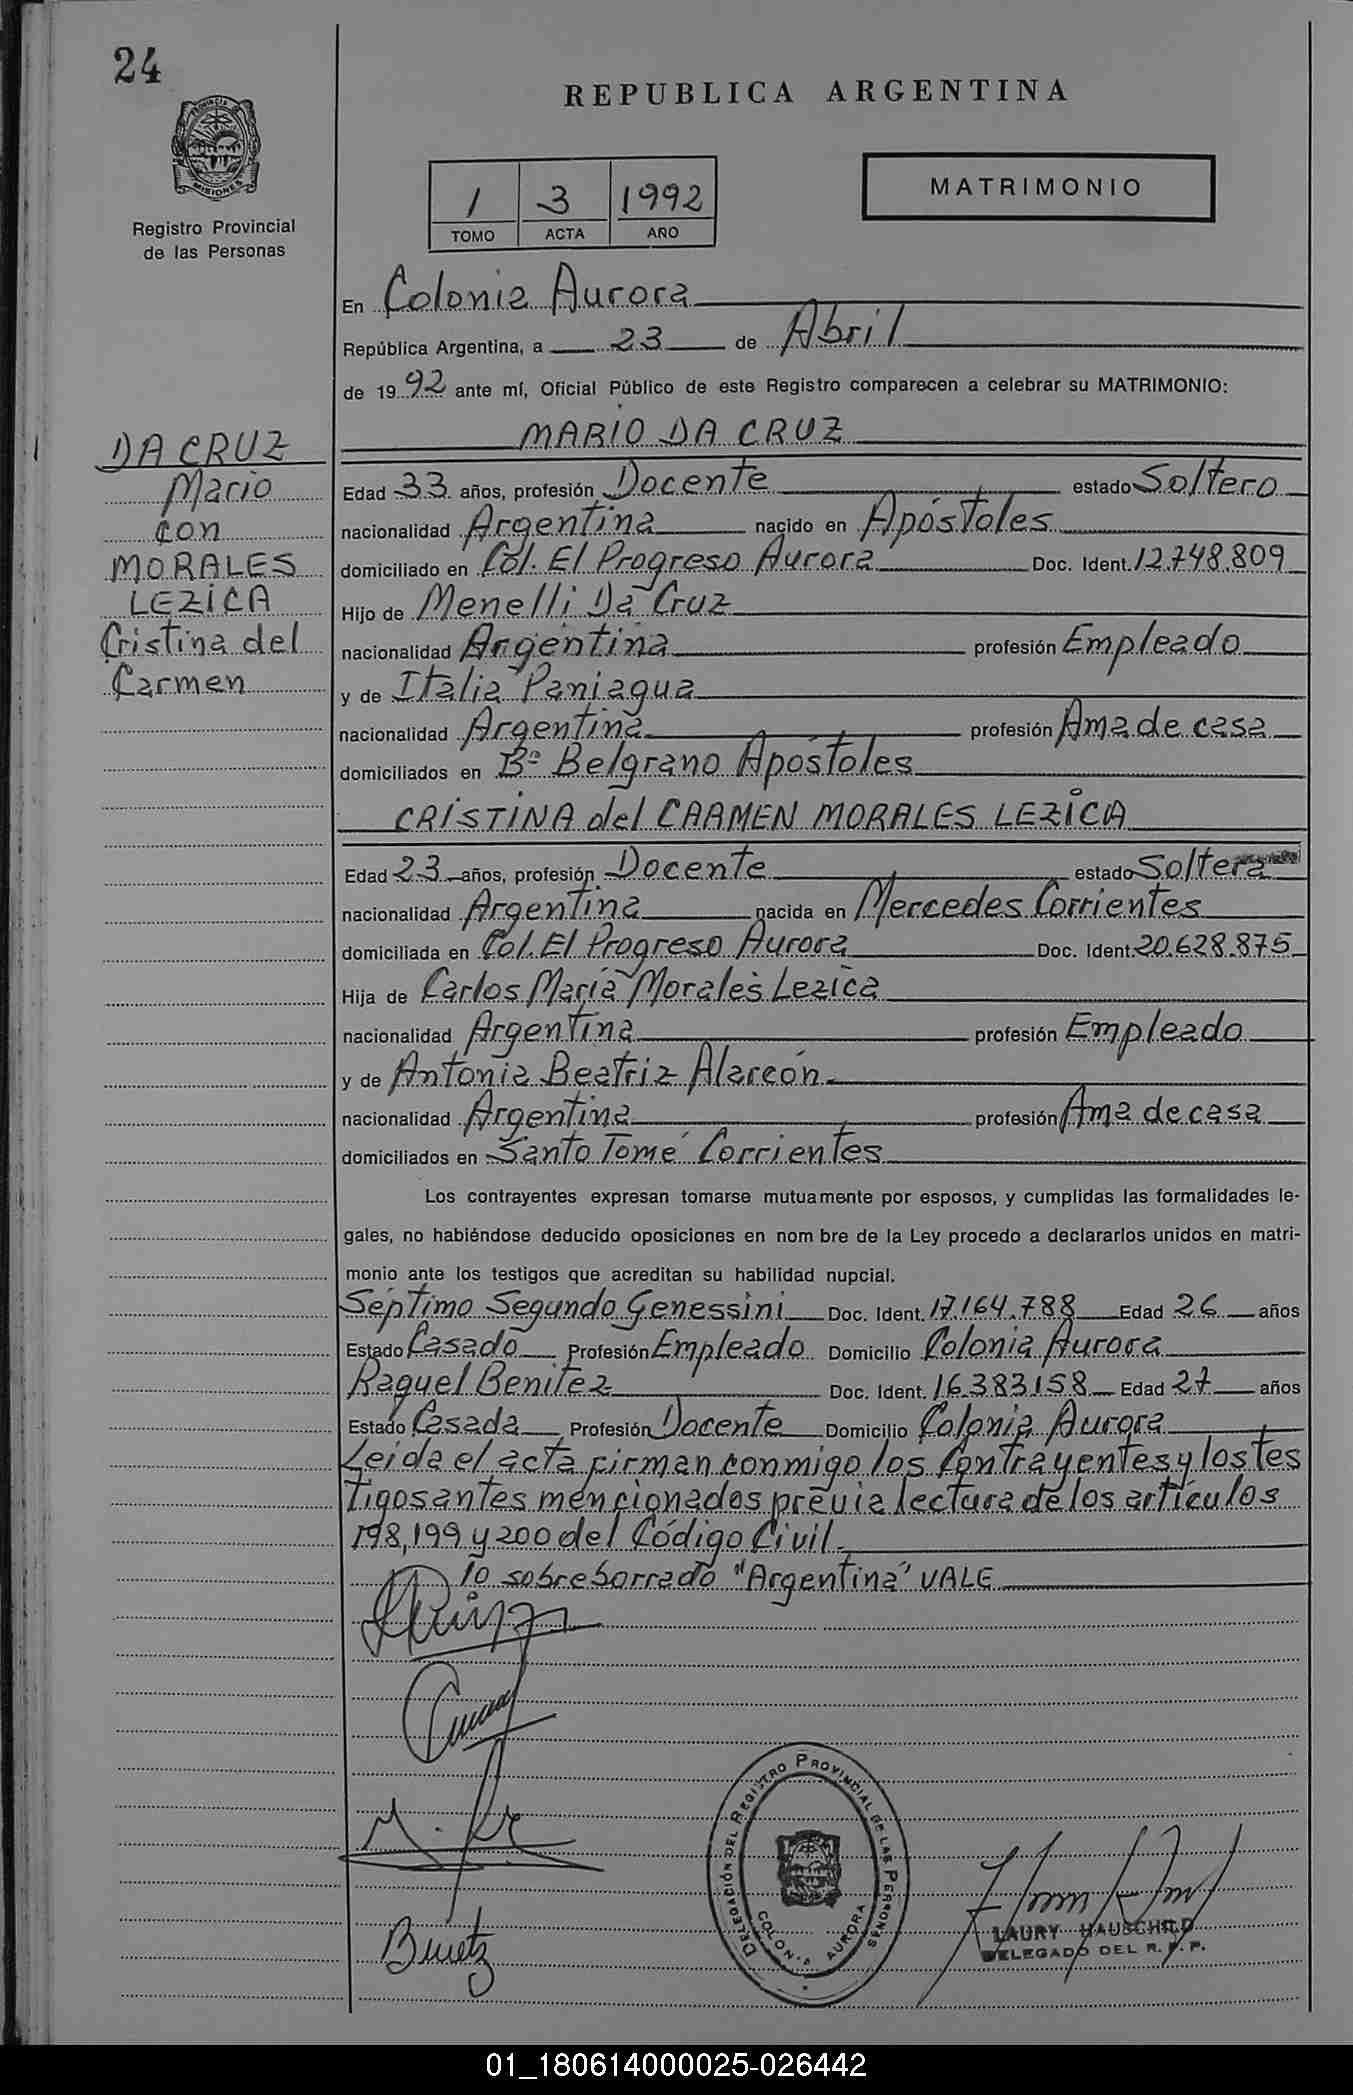 24
REPUBLICA ARGENTINA
PROVINCIA DE
MISIONES
Registro Provincial
de las Personas
1 3 1992
TOMO ACTA AÑO
MATRIMONIO
En Colonia Aurora
República Argentina, a 23 de Abril
de 1992 ante mí, Oficial Público de este Registro comparecen a celebrar su MATRIMONIO:
DA CRUZ
Mario
con
MORALES
LEZICA
Cristina del
Carmen
MARIO DA CRUZ
Edad 33 años, profesión Docente estado Soltero
nacionalidad Argentina nacido en Apóstoles
domiciliado en Col. El Progreso Aurora Doc. Ident. 12.748.809
Hijo de Menelli Da Cruz
nacionalidad Argentina profesión Empleado
y de Italia Paniagua
nacionalidad Argentina profesión Ama de casa
domiciliados en Bº Belgrano Apóstoles
CRISTINA del CARMEN MORALES LEZICA
Edad 23 años, profesión Docente estado Soltera
nacionalidad Argentina nacida en Mercedes Corrientes
domiciliada en Col. El Progreso Aurora Doc. Ident. 20.628.875
Hija de Carlos María Morales Lezica
nacionalidad Argentina profesión Empleado
y de Antonia Beatriz Alarcón
nacionalidad Argentina profesión Ama de casa
domiciliados en Santo Tomé Corrientes
Los contrayentes expresan tomarse mutuamente por esposos, y cumplidas las formalidades le-
gales, no habiéndose deducido oposiciones en nom bre de la Ley procedo a declararlos unidos en matri-
monio ante los testigos que acreditan su habilidad nupcial.
Séptimo Segundo Genessini Doc. Ident. 17.164.788 Edad 26 años
Estado Casado Profesión Empleado Domicilio Colonia Aurora
Raquel Benitez Doc. Ident. 16.383.158 Edad 27 años
Estado Casada Profesión Docente Domicilio Colonia Aurora
Leida el acta firman conmigo los Contrayentes y los tes
tigos antes mencionados previa lectura de los artículos
198, 199 y 200 del Código Civil.
lo sobreborrado "Argentina" VALE
Benitz
DELEGACIÓN DEL REGISTRO PROVINCIAL DE LAS PERSONAS
COLONIA AURORA
LAURY HAUSCHILD
DELEGADO DEL R. P. P.
01_180614000025-026442